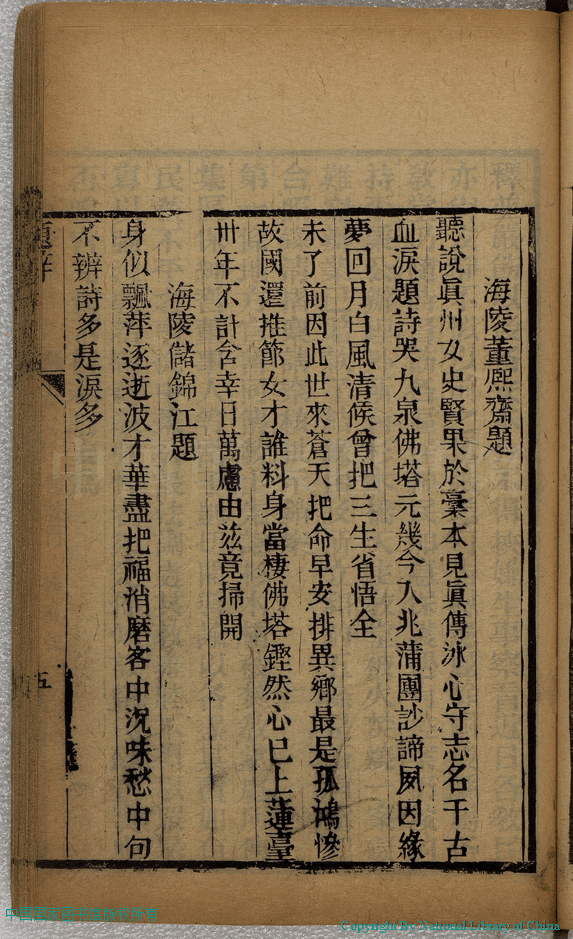 海陵董熙齋題
聽說眞州女史賢果於藁本見眞傳泳心守志名千古
血淚題詩哭九泉佛塔元幾今入兆蒲團訬諦夙因緣
夢回月白風清候曾把三生省悟全
未了前因此世來蒼天把命早安排異鄉最是孤鴻慘
故國還推節女才誰料身當棲佛塔鏗然心已上蓮臺
卅年不計含幸日萬慮由茲竟掃開
海陵儲錦江題
身似飄萍逐逝波才華盡把福消磨客中況味愁中句
不辨詩多是淚多
題辭
五
Copyright By National Library of China